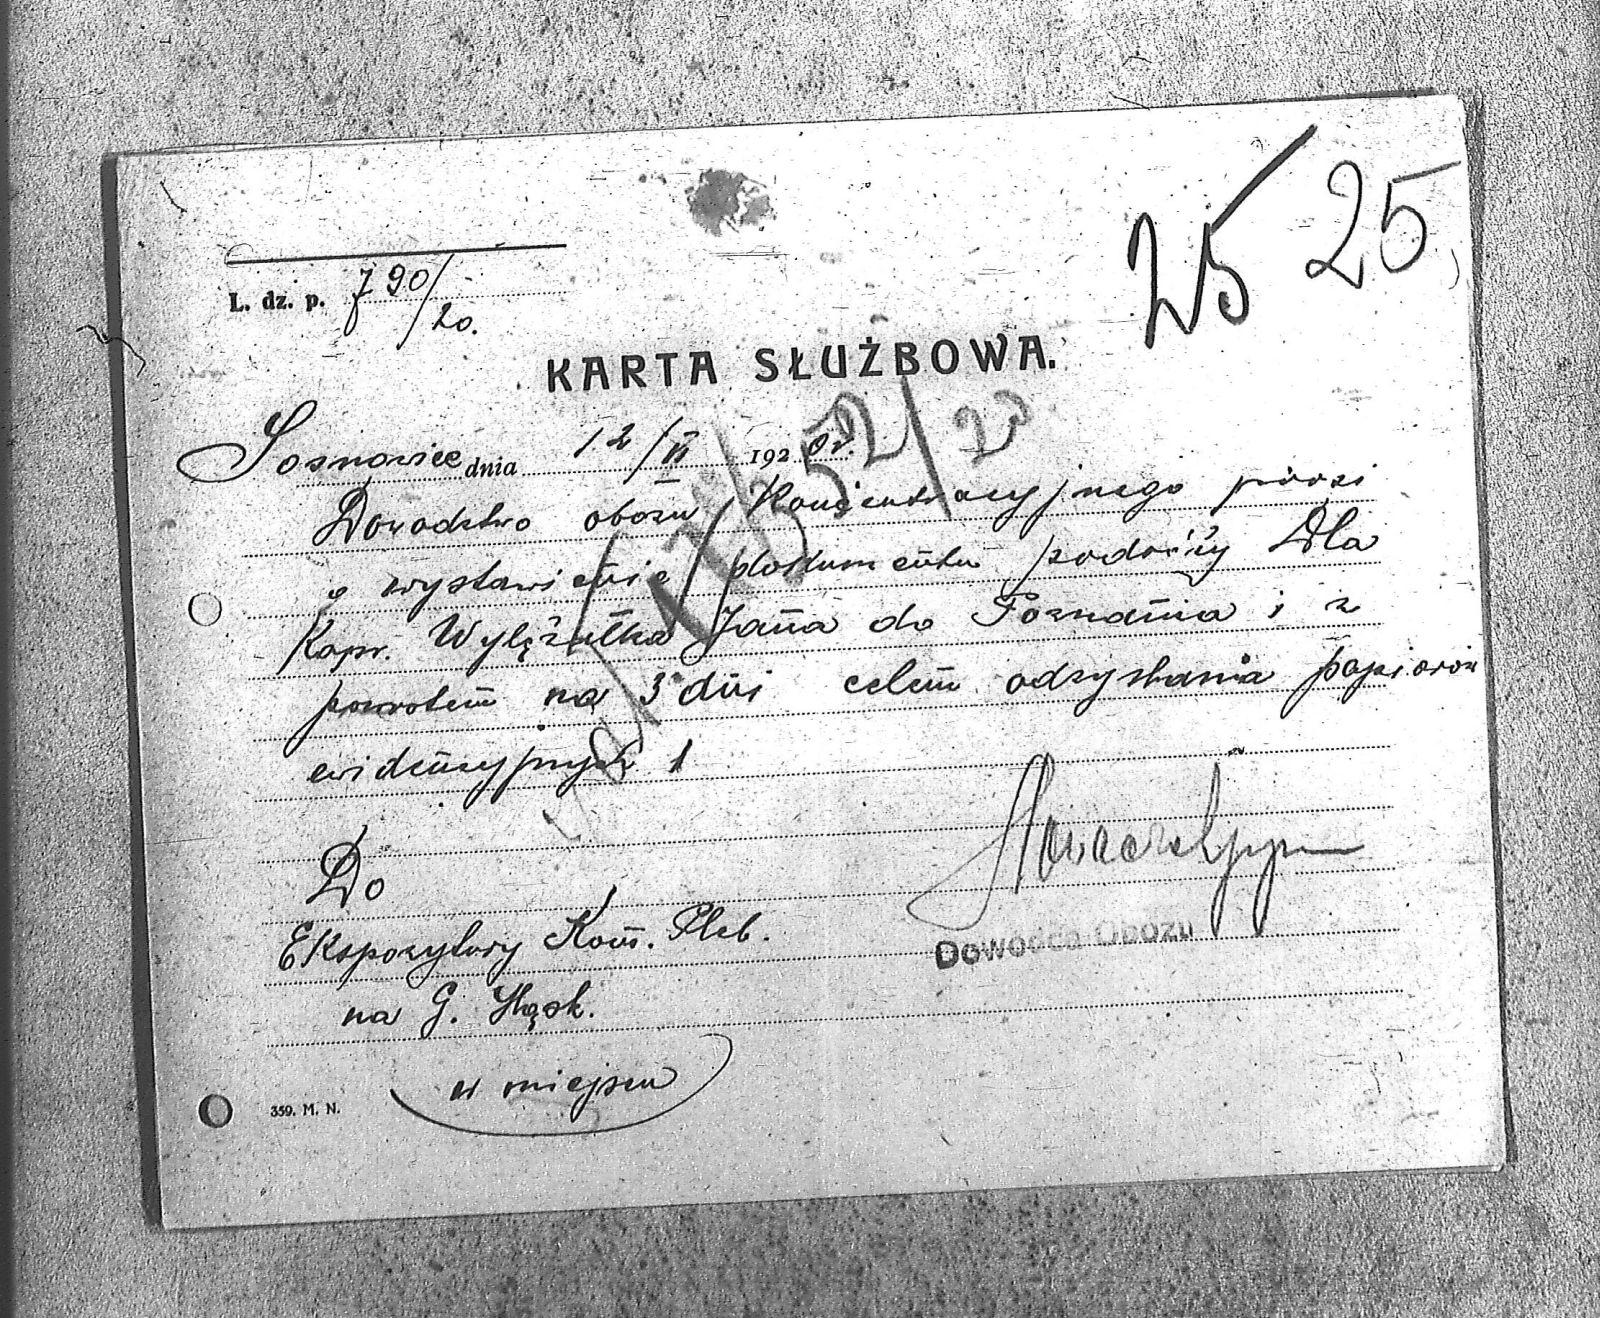 25 25
L. dz. p. 790/20.
KARTA SŁUŻBOWA.
Sosnowiec dnia 12/VI 1920 r.
Dowodztwo obozu Koncentracyjnego prosi
o wystawienie dokumentu podróży Dla
Kapr. Wylężałka Jana do Poznania i z
powrotem na 3 dni celem odzyskania papierów
ewidencyjnych
Do
Ekspozytury Kom. Pleb.
Dowódca Obozu
na G. Śląsk.
w miejscu
359. M. N.